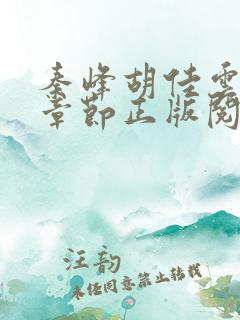 秦峰胡佳雲
章節正版閱
汪韵
未任同意禁止转载